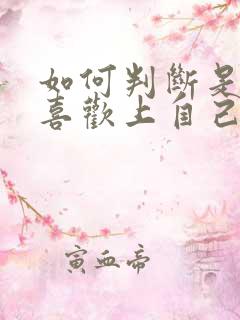 如何判斷是
喜歡上自己
寅血帝